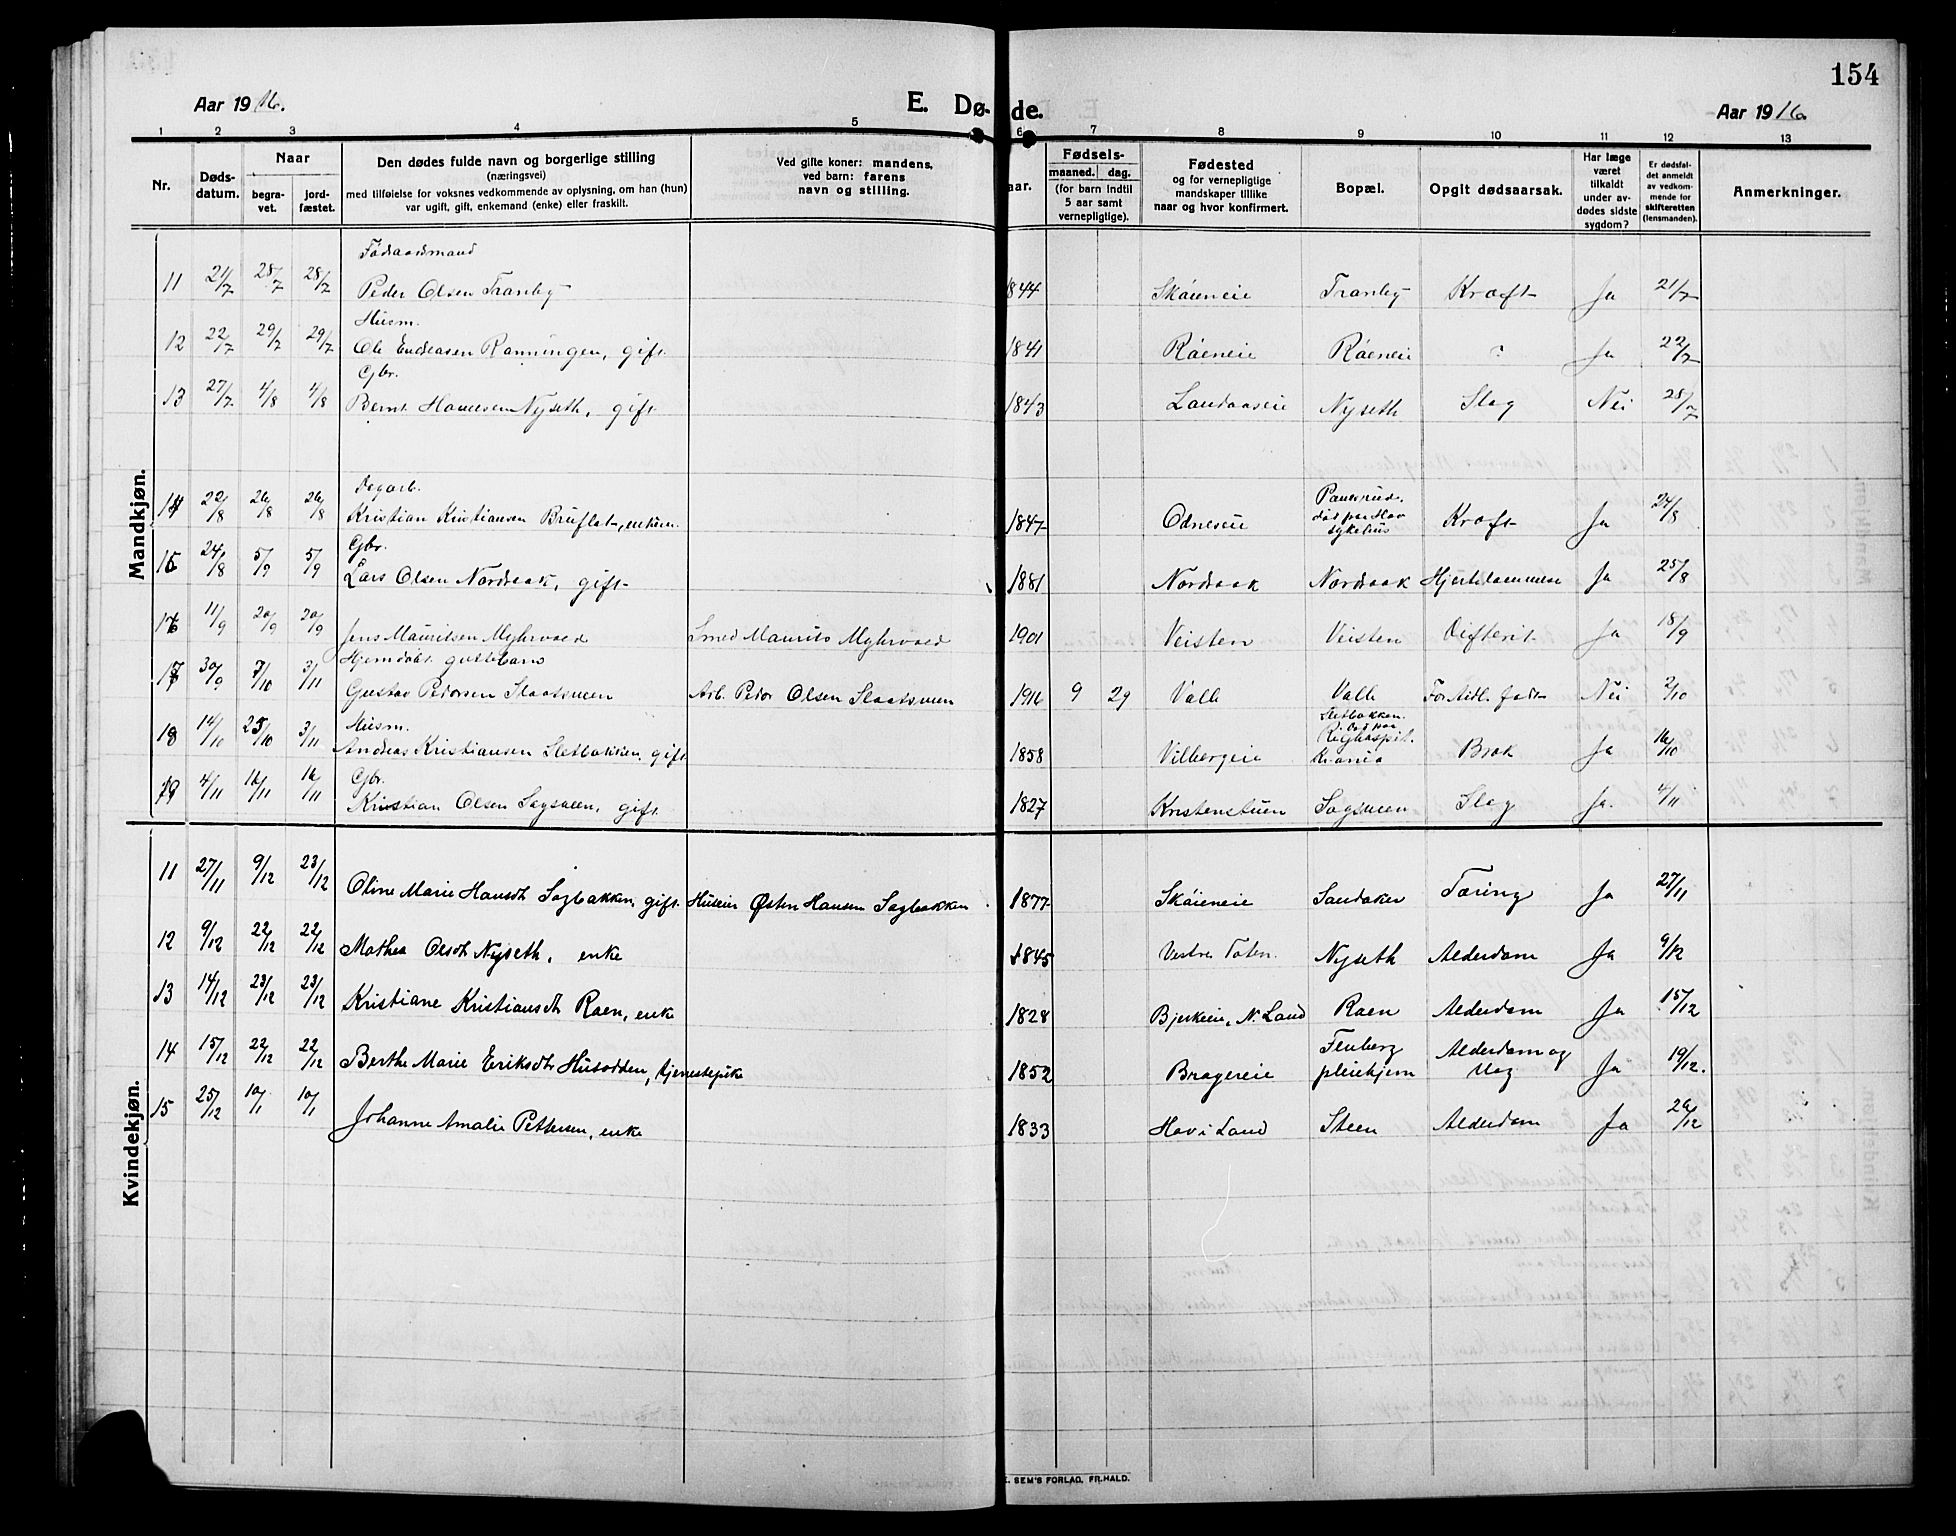 154
Aar 1916.
E. Dø-de.
Aar 1916.
1 2 3 4 5 6 7 8 9 10 11 12 13
Nr.
Døds-datum.
Naar
begra-vet.
jord-fæstet.
Den dødes fulde navn og borgerlige stilling
(næringsvei)
med tilføielse for voksnes vedkommende av oplysning, om han (hun)
var ugift, gift, enkemand (enke) eller fraskilt.
Ved gifte koner: mandens,
ved barn: farens
navn og stilling.
aar.
Fødsels-
maaned. dag.
(for barn indtil
5 aar samt
vernepligtige).
Fødested
og for vernepligtige
mandskaper tillike
naar og hvor konfirmert.
Bopæl.
Opgit dødsaarsak.
Har læge
været
tilkaldt
under av-
dødes sidste
sygdom?
Er dødsfal-
det anmeldt
av vedkom-
mende for
skifteretten
(lensmanden).
Anmerkninger.
Mandkjøn.
Føderaadsmand
11 21/7 28/7 28/7 Peder Olsen Tranby 1844 Skøieneie Tranby Kræft Ja 21/7
Husm.
12 22/7 29/7 29/7 Ole Endreasen Rønningen, gift 1841 Røeneie Røeneie ? Ja 22/7
Gbr.
13 27/7 4/8 4/8 Bernt Hansen Nyseth, gift 1843 Landaaseie Nyseth Slag Nei 28/7
Dagarb.
14 22/8 26/8 26/8 Kristian Kristiansen Bruflat, enkem. 1847 Odneseie død paa Hov sykehus Kræft Ja 24/8
Gbr.
15 24/8 5/9 5/9 Lars Olsen Nordraak, gift 1881 Nordraak Nordraak Hjertelammelse Ja 25/8
16 11/9 20/9 20/9 Jens Mauritsen Myhrvold Smed Maurits Myhrvold 1901 Veisten Veisten Difterit Ja 18/9
Hjemdøbt guttebarn
17 30/9 7/10 3/11 Gustav Pedersen Slaatsveen Arb. Peder Olsen Slaatsveen 1916 9 29 Valle Valle For tidl. født Nei 2/10
Husm.
18 14/10 25/10 3/11 Andreas Kristiansen Sletbakken, gift 1858 Vilbergeie Sletbakken. Død paa Righospit. Kr.ania Brok Ja 16/10
Gbr.
19 4/11 16/11 16/11 Kristian Olsen Sagsveen, gift 1827 Kristenstuen Sagsveen Slag Ja. 4/11
Kvindekjøn.
11 27/11 9/12 23/12 Oline Marie Hansdt. Sagbakken, gift Huseier Østen Hansen Sagbakken 1877 Skøieneie Sandaker Tæring Ja 27/11
12 9/12 22/12 22/12 Mathea Olsdt. Nyseth, enke 1845 Vestre Toten Nyseth Alderdom Ja 9/12
13 14/12 23/12 23/12 Kristiane Kristiansdt. Roen, enke 1828 Bjerkeie, N. Land Roen Alderdom Ja 15/12
14 15/12 22/12 22/12 Berthe Marie Eriksdt. Husodden, tjenestepike 1852 Bragereie Fluberg pleiehjem Alderdom og Slag Ja 19/12.
15 25/12 10/1 10/1 Johanne Amalie Pettersen, enke 1833 Hov i Land Steen Alderdom Ja 26/12
E. SEM'S FORLAG, FR.HALD.